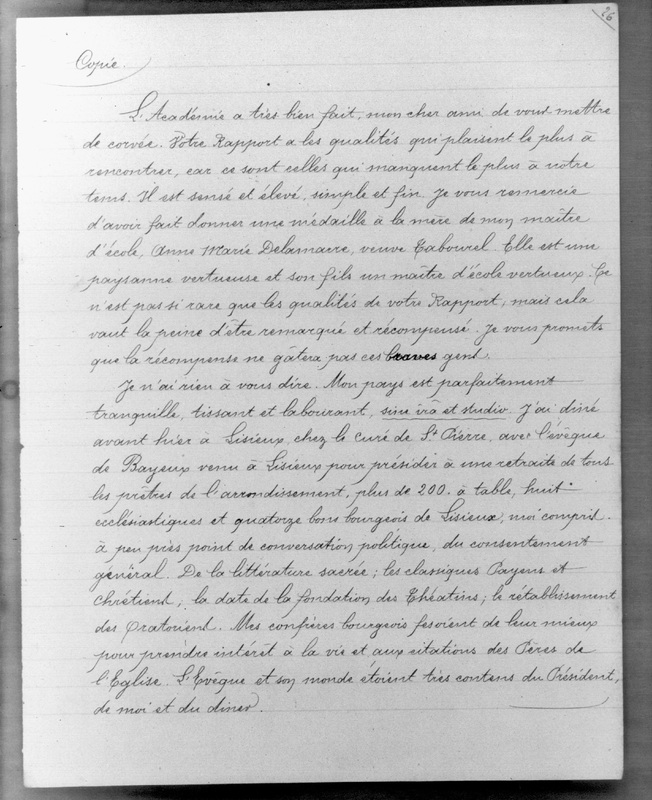 26
Copie.
L'Académie a très bien fait, mon cher ami de vous mettre
de corvée. Votre Rapport a les qualités qui plaisent le plus à
rencontrer, car ce sont celles qui manquent le plus à notre
tems. Il est sensé et élevé, simple et fin. Je vous remercie
d'avoir fait donner une médaille à la mère de mon maître
d'école, Anne Marie Delamarre, veuve Tabourel. Elle est une
paysanne vertueuse et son fils un maître d'école vertueux. Ce
n'est pas si rare que les qualités de votre Rapport, mais cela
vaut la peine d'être remarqué et récompensé. Je vous promets
que la récompense ne gâtera pas ces braves gens.
Je n'ai rien à vous dire. Mon pays est parfaitement
tranquille, tissant et labourant, sine irâ et studio. J'ai diné
avant hier à Lisieux, chez le curé de St Pierre, avec l'évêque
de Bayeux venu à Lisieux pour présider à une retraite de tous
les prêtres de l'arrondissement, plus de 200. à table, huit
ecclésiastiques et quatorze bons bourgeois de Lisieux, moi compris.
à peu près point de conversation politique, du consentement
général. De la littérature sacrée; les classiques Payens et
Chrétiens; la date de la fondation des Théatins; le rétablissement
des Oratoriens. Mes confrères bourgeois fesoient de leur mieux
pour prendre intérêt à la vie et aux citations des Pères de
l'Eglise. L'Evêque et son monde étoient très contens du Président,
de moi et du diner.